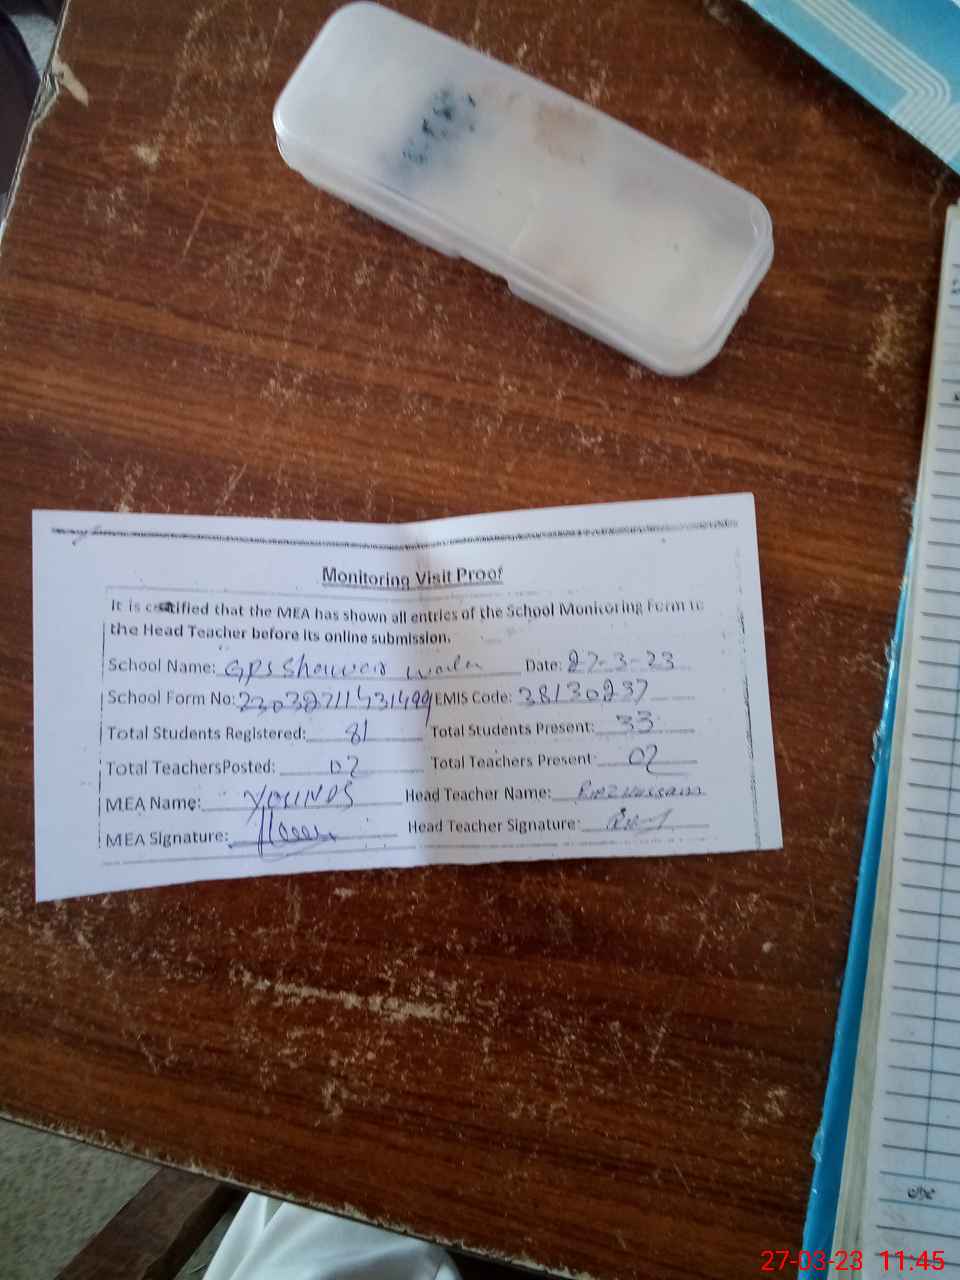 Monitoring Visit Proof
It is certified that the MEA has shown all entries of the School Monitoring Form to
the Head Teacher before its online submission.
School Name: GPS Date: 27-3-23
School Form No: EMIS Code: 38130237
Total Students Registered: 81 Total Students Present: 33
Total TeachersPosted: 02 Total Teachers Present: 02
MEA Name: YOUNOS Head Teacher Name:
MEA Signature: Head Teacher Signature:
27-03-23 11:45